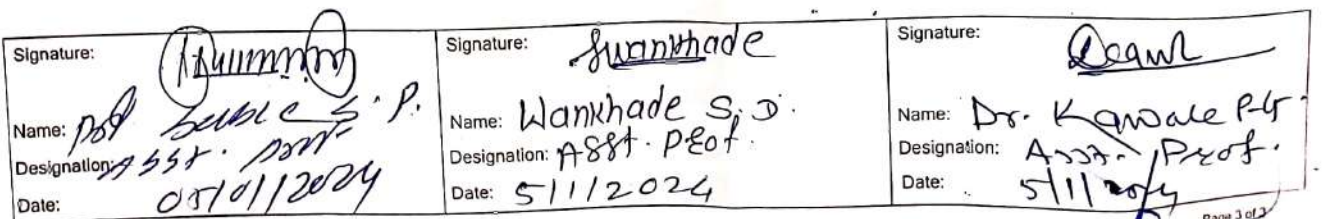 Signature:
Name: Prof S. P.
Designation: Asst. Prof
Date: 05/01/2024
Signature: Swankhade
Name: Wankhade S. D.
Designation: Asst. Prof.
Date: 5/1/2024
Signature:
Name: Dr. Kawale P. G.
Designation: Asst. Prof.
Date: 5/1/2024
Page 3 of 3